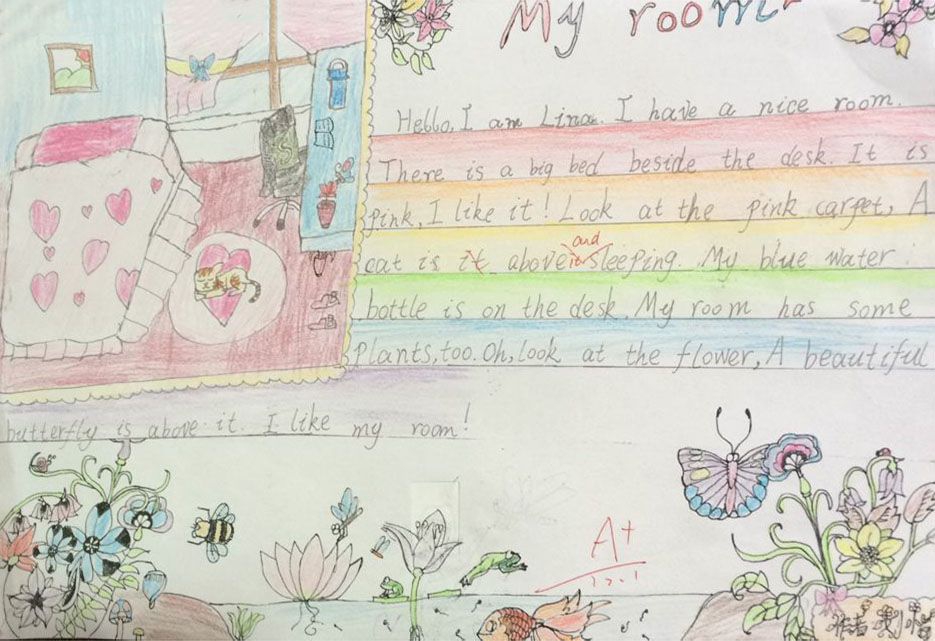 My room
Hello, I am Lina. I have a nice room.
There is a big bed beside the desk. It is
pink. I like it! Look at the pink carpet, A
and
cat is it above it sleeping. My blue water
bottle is on the desk. My room has some
plants, too. Oh, look at the flower, A beautiful
butterfly is above it. I like my room!
A+
12.1